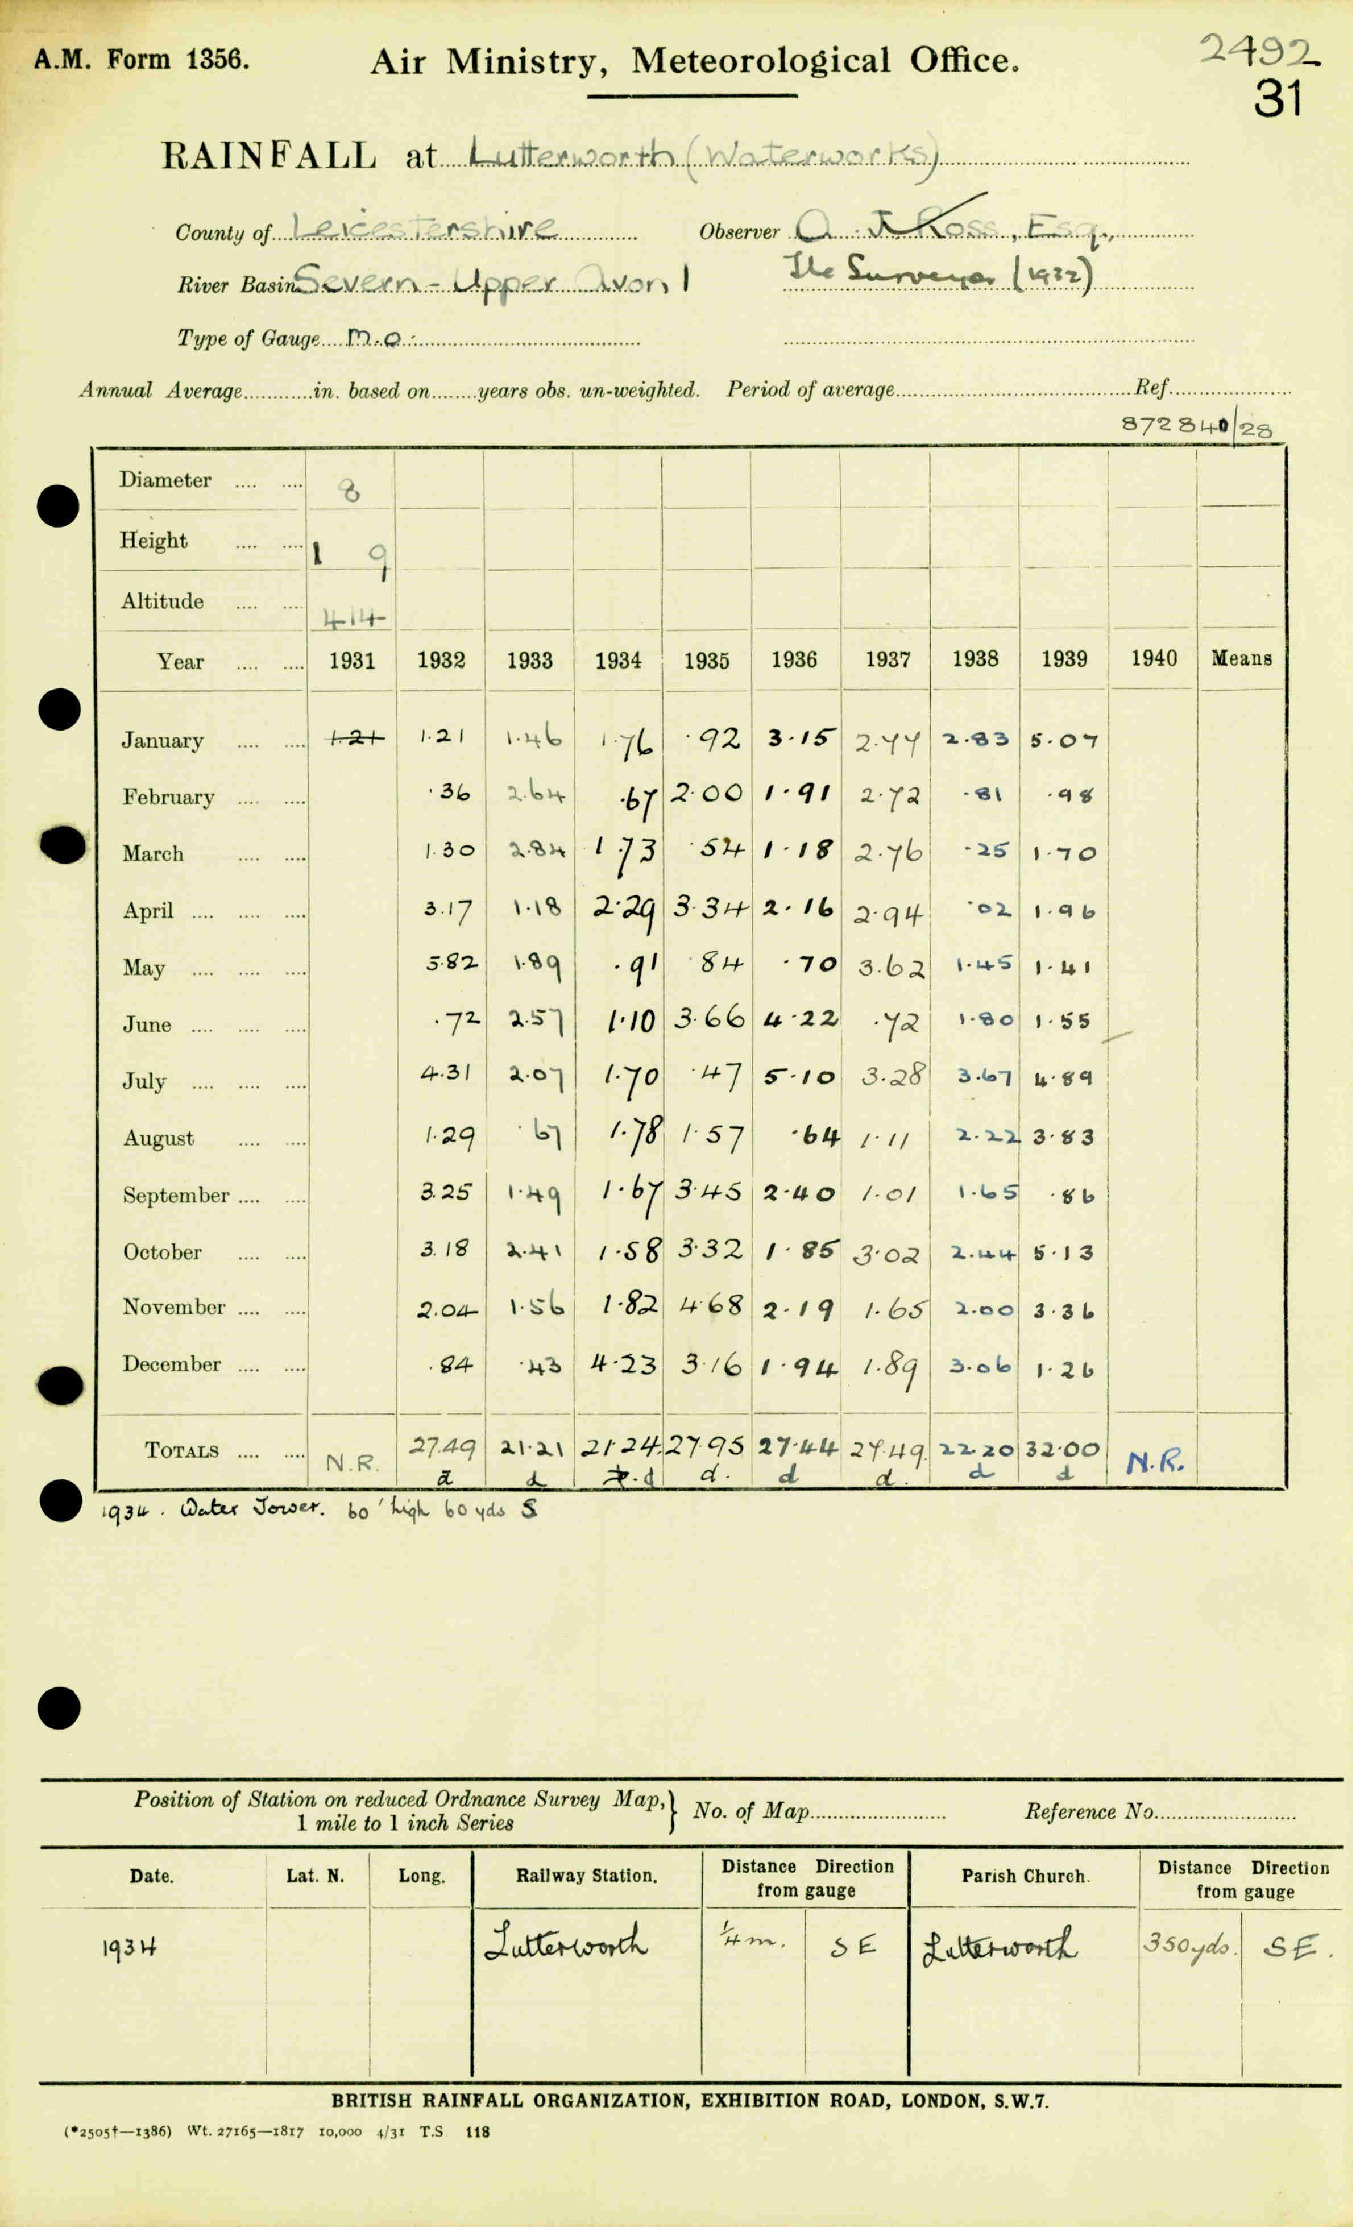 A.M. Form 1356. Air Ministry, Meteorological Office. 2492
31
RAINFALL at Lutterworth (Waterworks)
County of Leicestershire Observer A. J. Ross, Esq.,
River Basin Severn - Upper Avon 1 The Surveyor (1932)
Type of Gauge M.O.
Annual Average in. based on years obs. un-weighted. Period of average Ref.
872840/28
Diameter 8
Height 1 9
Altitude 414
Year 1931 1932 1933 1934 1935 1936 1937 1938 1939 1940 Means
January 1.21 1.21 1.46 1.76 .92 3.15 2.77 2.83 5.07
February .36 2.64 .67 2.00 1.91 2.72 .81 .98
March 1.30 2.84 1.73 .54 1.18 2.76 .25 1.70
April 3.17 1.18 2.29 3.34 2.16 2.94 .02 1.96
May 5.82 1.89 .91 .84 .70 3.62 1.45 1.41
June .72 2.57 1.10 3.66 4.22 .72 1.80 1.55
July 4.31 2.07 1.70 .47 5.10 3.28 3.67 4.89
August 1.29 .67 1.78 1.57 .64 1.11 2.22 3.83
September 3.25 1.49 1.67 3.45 2.40 1.01 1.65 .86
October 3.18 2.41 1.58 3.32 1.85 3.02 2.44 5.13
November 2.04 1.56 1.82 4.68 2.19 1.65 2.00 3.36
December .84 .43 4.23 3.16 1.94 1.89 3.06 1.26
TOTALS N.R. 27.49 21.21 21.24 27.95 27.44 27.49 22.20 32.00 N.R.
d d d d. d d. d d
1934. Water Tower. 60' high 60 yds S
Position of Station on reduced Ordnance Survey Map, No. of Map Reference No.
1 mile to 1 inch Series
Date. Lat. N. Long. Railway Station. Distance Direction from gauge Parish Church. Distance Direction from gauge
1934 Lutterworth ¼ m. SE Lutterworth 350 yds. SE.
BRITISH RAINFALL ORGANIZATION, EXHIBITION ROAD, LONDON, S.W.7.
(*2505†—1386) Wt. 27165—1817 10,000 4/31 T.S 118